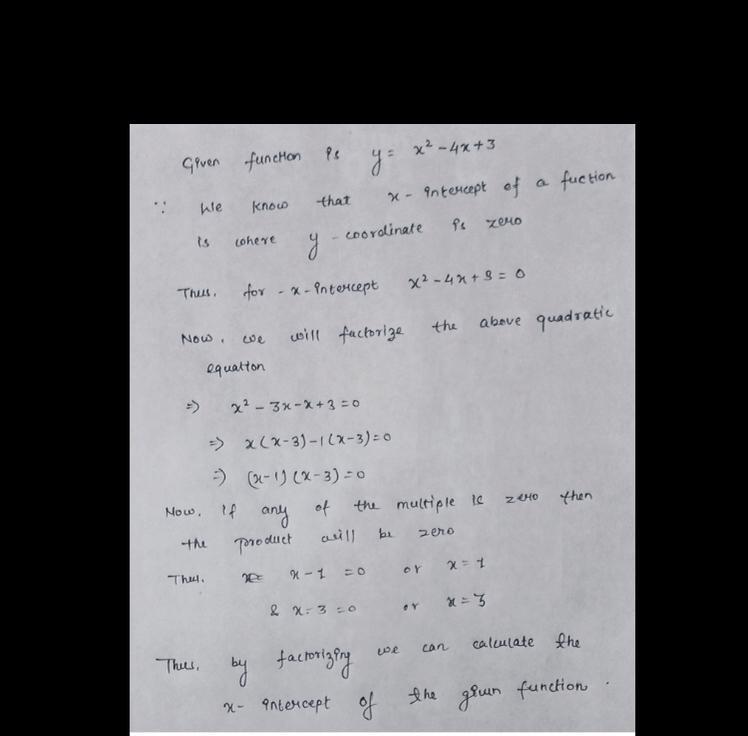 Given function is y = x² - 4x + 3
∵ We know that x - intercept of a fuction
is where y - coordinate is zero
Thus, for - x - intercept x² - 4x + 3 = 0
Now, we will factorize the above quadratic
equation
=> x² - 3x - x + 3 = 0
=> x(x-3) - 1(x-3) = 0
=> (x-1)(x-3) = 0
Now, if any of the multiple is zero then
the product will be zero
Thus, x - 1 = 0 or x = 1
& x - 3 = 0 or x = 3
Thus, by factorizing we can calculate the
x- intercept of the given function .